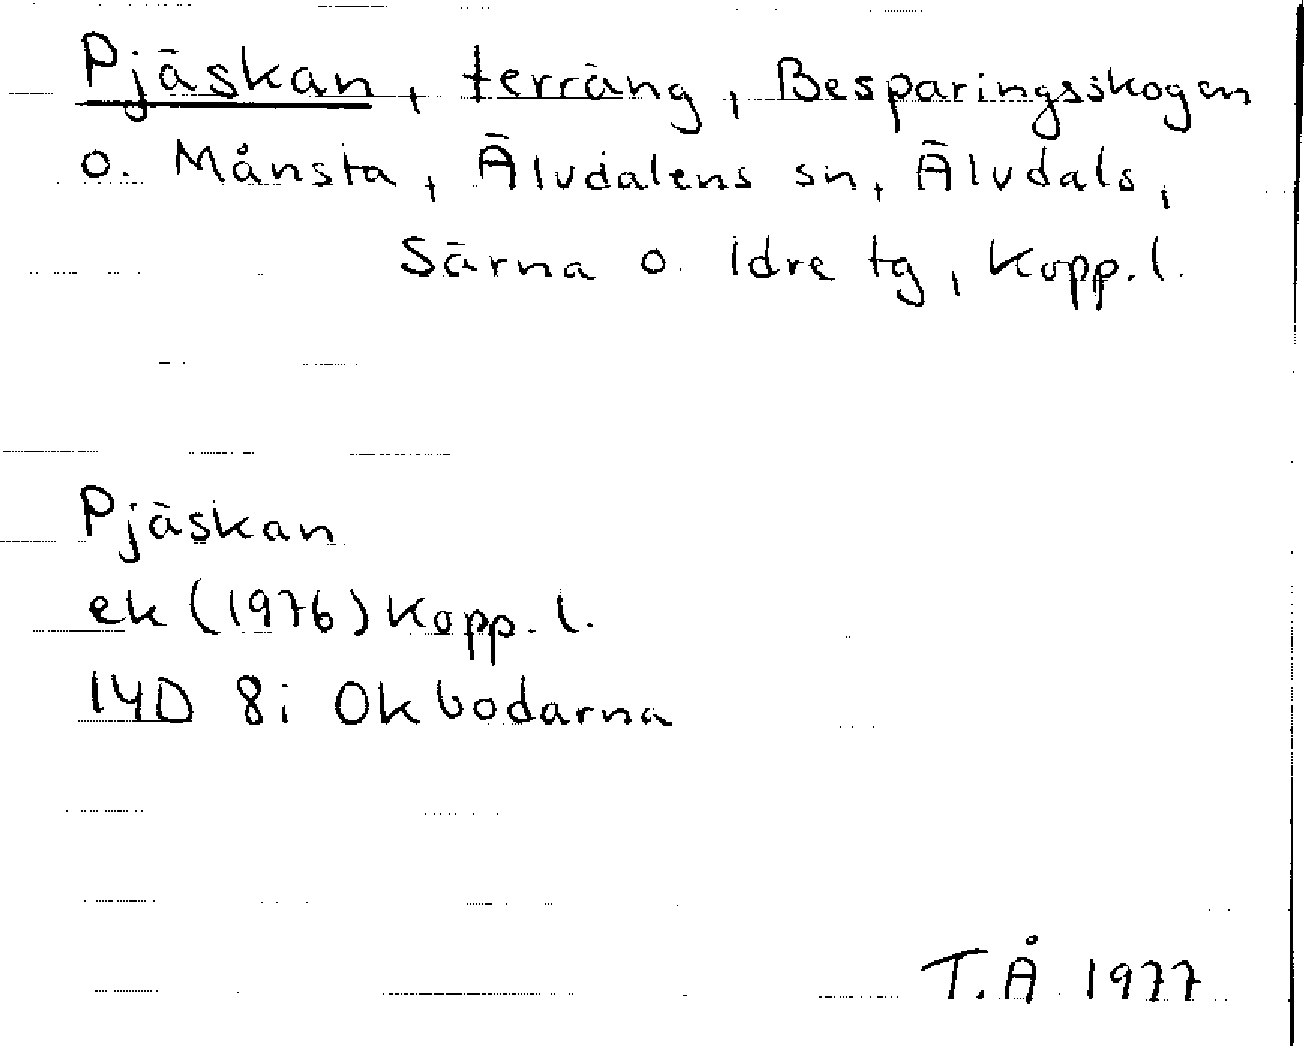 Pjäskan, terräng, Besparingsskogen
o. Månsta, Älvdalens sn, Älvdals,
Särna o. Idre tg, Kopp.l.
Pjäskan
ek (1976) Kopp.l.
14D 8i Okbodarna
T.Å 1977